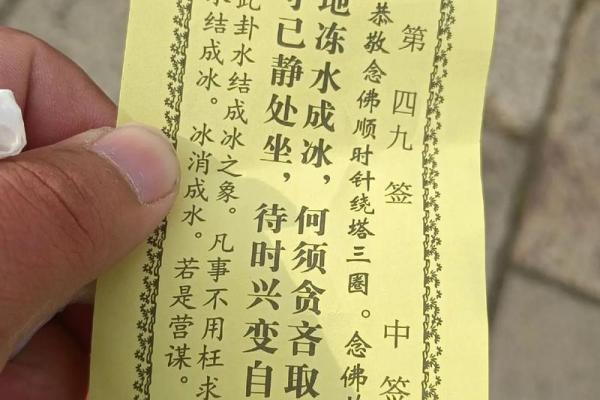 第四九签 中签
恭敬念佛顺时针绕塔三圈。念佛
地冻水成冰，何须贪吝取
己静处坐，待时兴变自
此卦水结成冰之象。凡事不用枉求
结成冰。冰消成水。若是营谋。